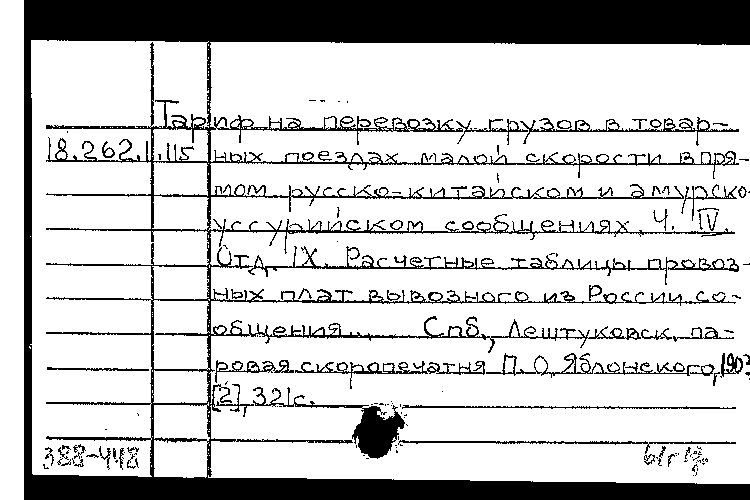 Тариф на перевозку грузов в товар-
18.262.1.115 ных поездах малой скорости в пря-
мом русско-китайском и амурско-
уссурийском сообщениях. Ч. IV.
Отд. IX. Расчетные таблицы провоз-
ных плат вывозного из России со-
общения... Спб., Лештуковск. па-
ровая скоропечатня П. О. Яблонского, 1903
[2], 321с.
388-448